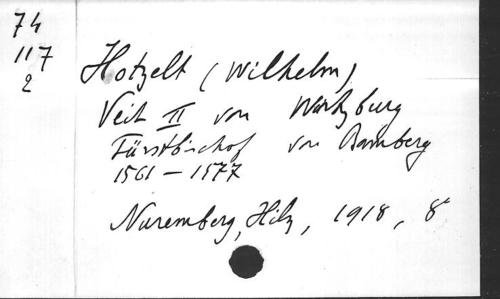 74
117
2
Hotzelt (Wilhelm)
Veit II von Würtzburg
Fürstbischof von Bamberg
1561 – 1577
Nuremberg, Hilz, 1918, 8°